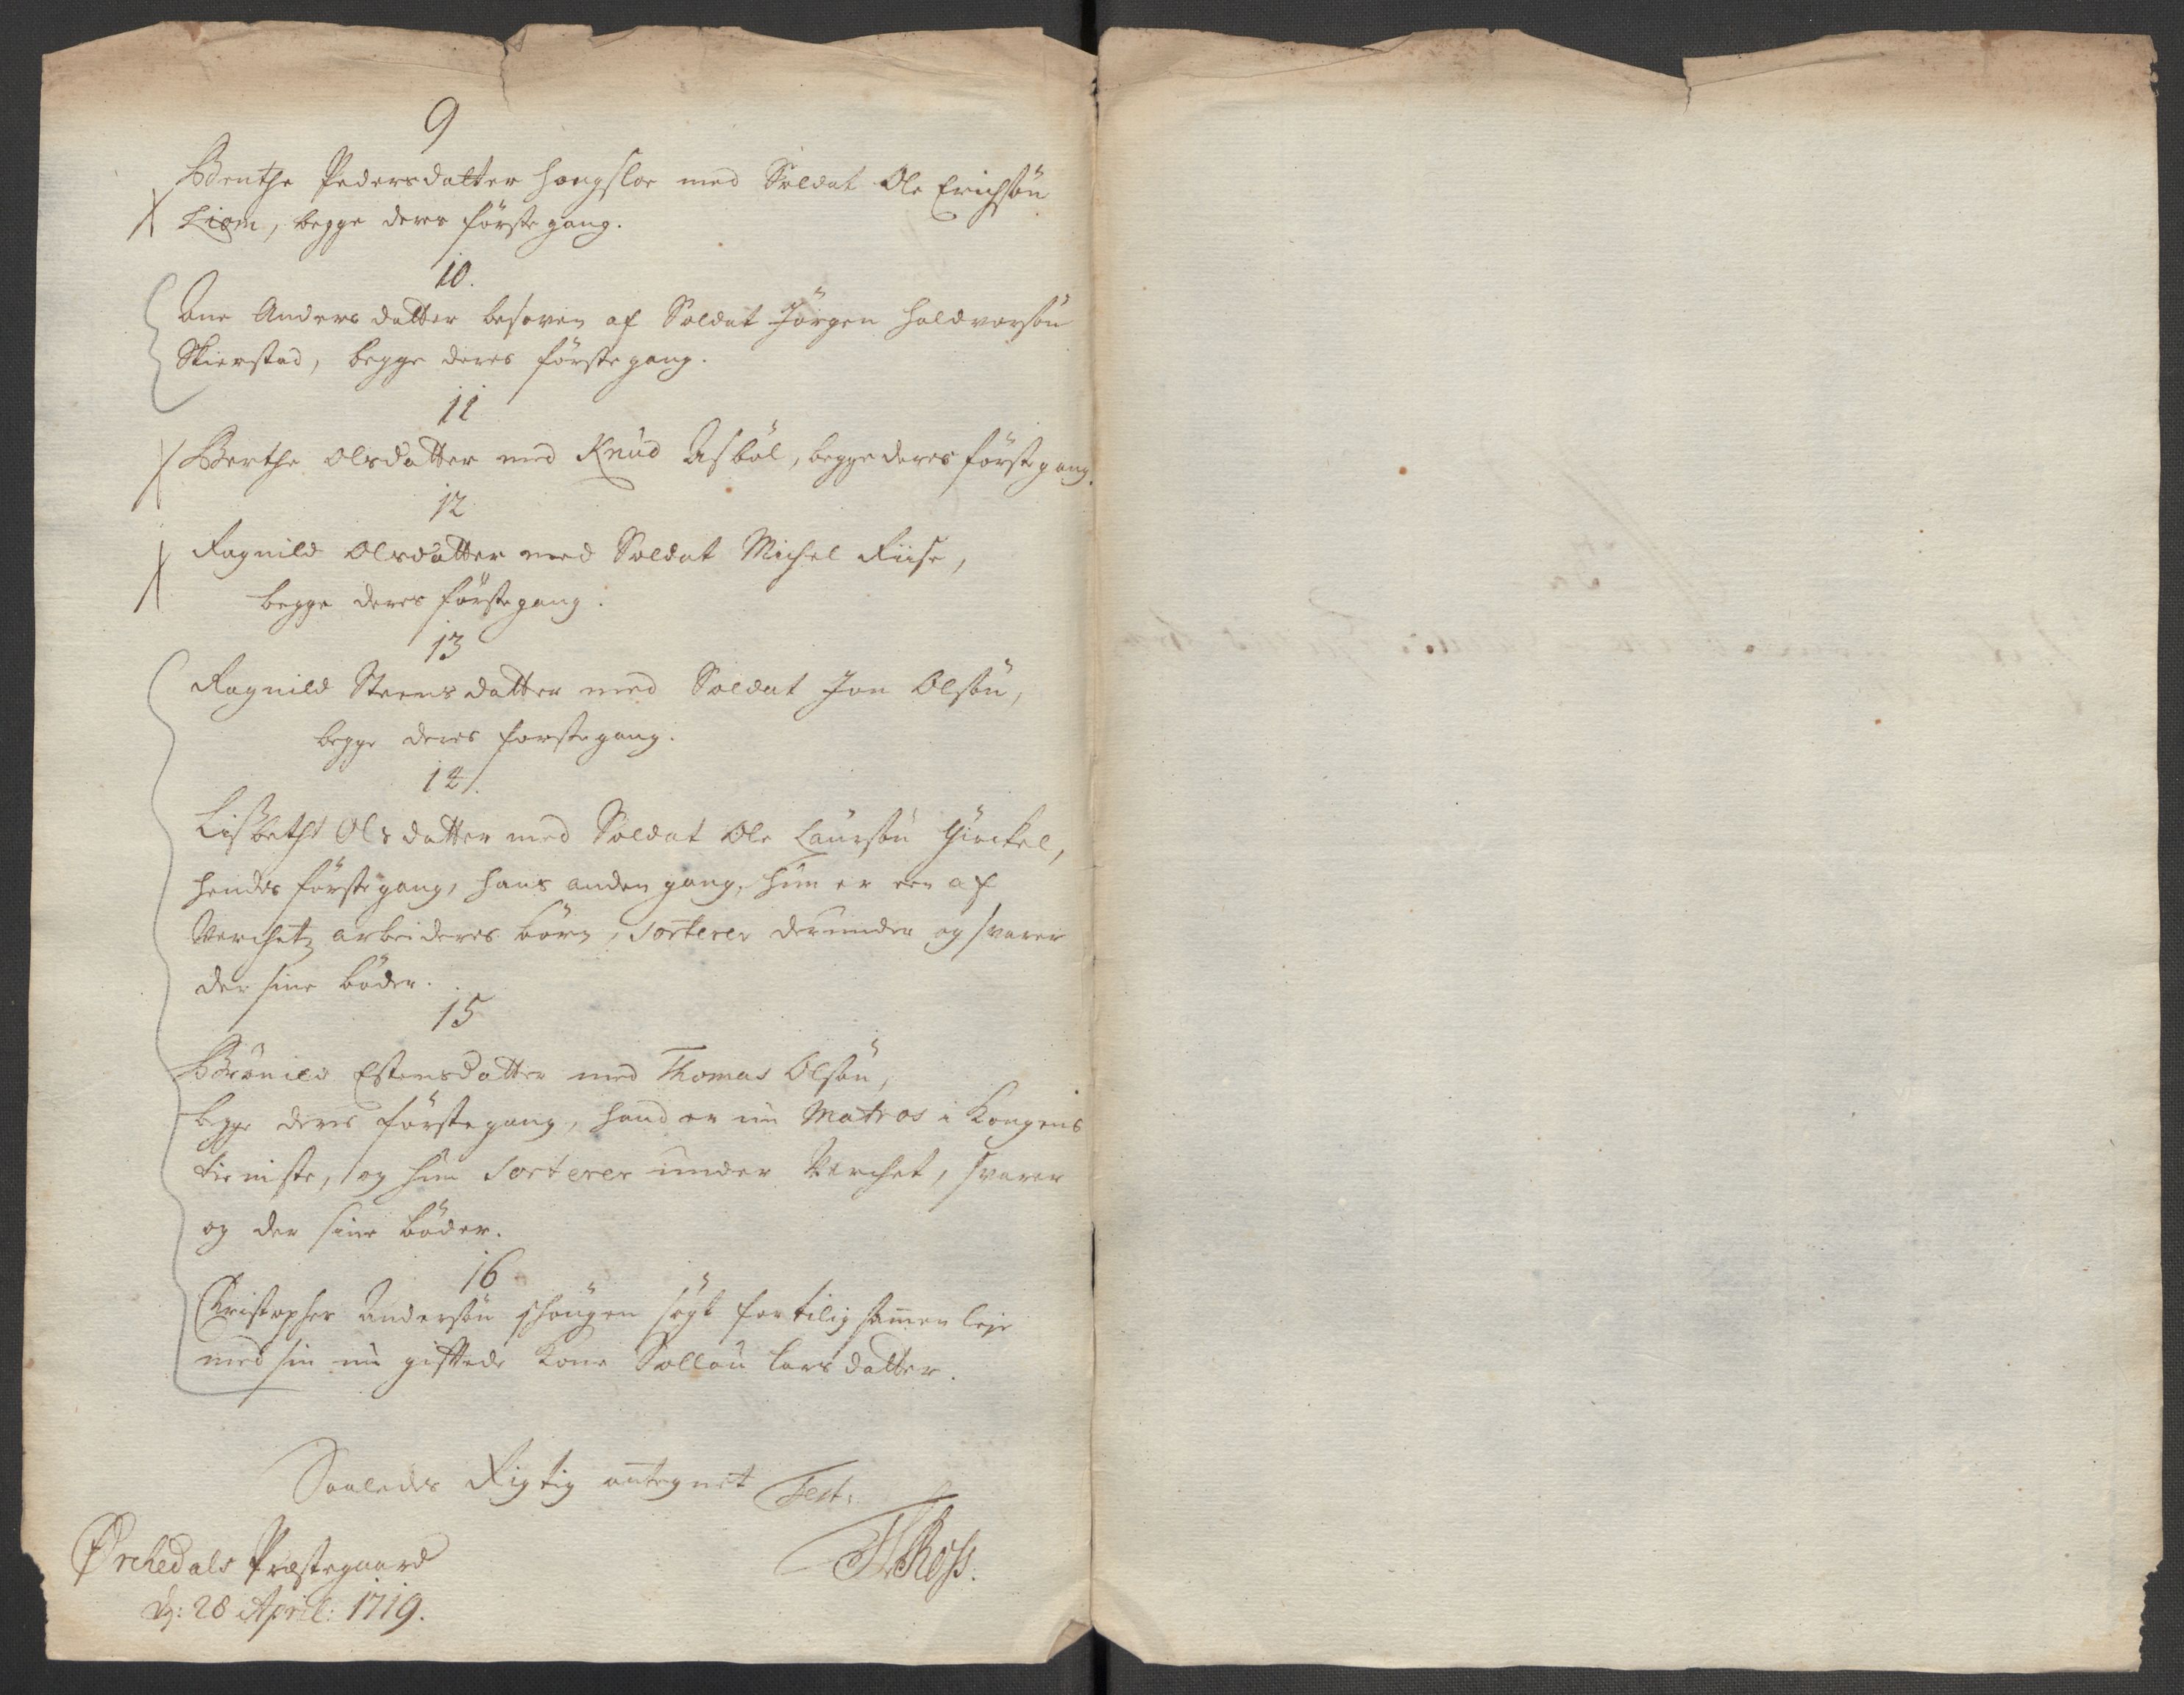 9
Berithe Pedersdatter Hongsloe med Soldat Ole Erichsøn
Liøm, begge deres første gang.
10.
Ane Anders datter besoven af Soldat Jørgen Haldvorsøn
Skierstad, begge deres første gang.
11
Berthe Olsdatter med Knud Asbøl, begge deres første gang.
12
Ragnild Olsdatter med Soldat Michel Riise,
begge deres første gang.
13
Ragnild Steensdatter med Soldat Jon Olsøn,
begge deres første gang.
14.
Lisbeth Olsdatter med Soldat Ole Laursøn
hendes første gang, hans anden gang, hun er een af
Verchetz arbeideres børn, sorterer derunder og svarer
der sine bøder.
15
Brønild Estensdatter med Thomas Olsøn,
begge deres første gang, hand er nu Matros i Kongens
tieniste, og hun sorterer under Verchet, svarer
og der sine bøder.
16
Christopher Andersøn søgt for tilig sammen leje
med sin nu giftede Kone Sollou Lars datter.
Saaledes Rigtig antegnet Test:
Ørchedals Præstegaard
d: 28 April: 1719.